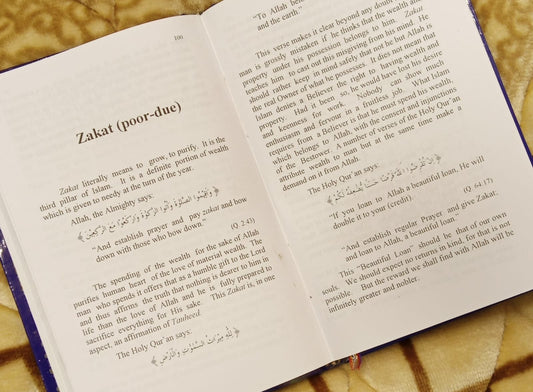 100
Zakat (poor-due)
Zakat literally means to grow, to purify. It is the
third pillar of Islam. It is a definite portion of wealth
which is given to needy at the turn of the year.
Allah, the Almighty says:
﴿ وَأَقِيمُوا الصَّلَوٰةَ وَآتُوا الزَّكَوٰةَ وَارْكَعُوا مَعَ الرَّاكِعِينَ ﴾
“And establish prayer and pay zakat and bow
down with those who bow down.” (Q 2:43)
The spending of the wealth for the sake of Allah
purifies human heart of the love of material wealth. The
man who spends it offers that as a humble gift to the Lord
and thus affirms the truth that nothing is dearer to him in
life than the love of Allah and he is fully prepared to
sacrifice everything for His sake. This Zakat is, in one
aspect, an affirmation of Tawheed.
The Holy Qur'an says:
﴿ لِلَّهِ مِيرَاثُ السَّمَوَاتِ وَالْأَرْضِ ﴾
“To Allah
and the earth.”
This verse makes it clear beyond any doubt
man is grossly mistaken if he thinks that the wealth and
property under his possession belongs to him. Zakat
teaches him to cast out this misgiving from his mind. He
should rather keep in mind safely that not he but Allah is
the real Owner of what he possesses. It dies not mean that
Islam denies a Believer the right to having wealth and
property. Had it been so, he would have lost his desire
and keenness for work. Nobody can show much
enthusiasm and fervour in a fruitless job. What Islam
requires from a Believer is that he must spend his wealth,
which belongs to Allah, with the consent and injunctions
of the Bestower. A number of verses of the Holy Qur'an
attribute wealth to man but at the same time make a
demand on it from Allah.
The Holy Qur'an says:
﴿ إِن تُقْرِضُوا اللَّهَ قَرْضًا حَسَنًا يُضَاعِفْهُ لَكُمْ ﴾
“If you loan to Allah a beautiful loan, He will
double it to your (credit) (Q 64:17)
“And establish regular Prayer and give Zakat;
and loan to Allah, a beautiful loan.”
This “Beautiful Loan” should be that of our own
souls. We should expect no returns in kind, for that is not
possible. But the reward we shall find with Allah will be
infinitely greater and nobler.